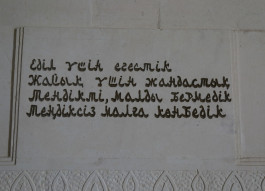 Еділ үшін егестік
Жайық үшін жандастық
Теңдікті, малды бермедік
Теңдіксіз малға көнбедік